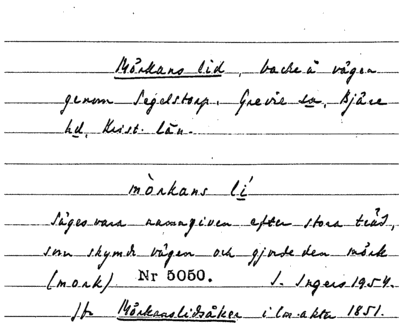 Mörkans lid, backe å vägen
genom Segelstorp. Grevie sn, Bjäre
hd, Krist. län.
mòrkans lí
Säges vara namngiven efter stora träd,
som skymde vägen och gjorde den mörk
(mork) Nr 5050. I. Ingers 1954.
Jfr Mörkanslidsåker i lm.akter 1851.